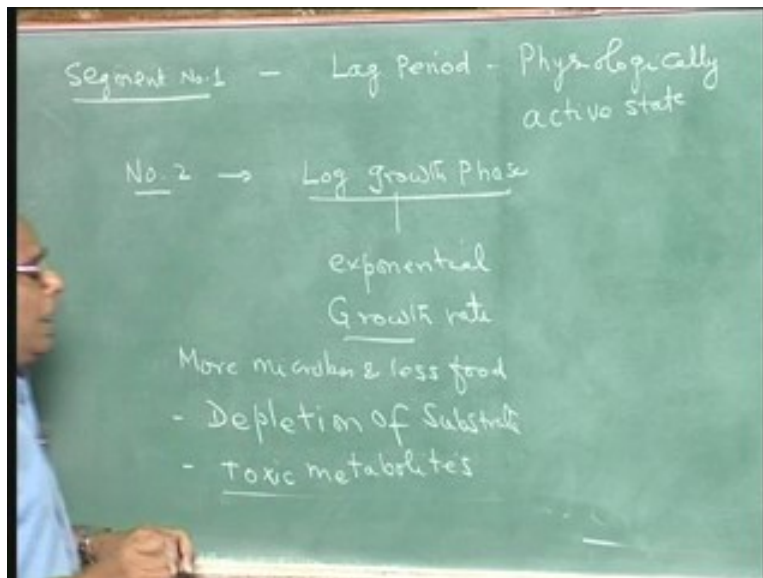 Segment No.1 - Lag Period - Physiologically
active state
No. 2 → Log growth Phase
exponential
Growth rate
More microbes & less food
- Depletion of Substrate
- Toxic metabolites